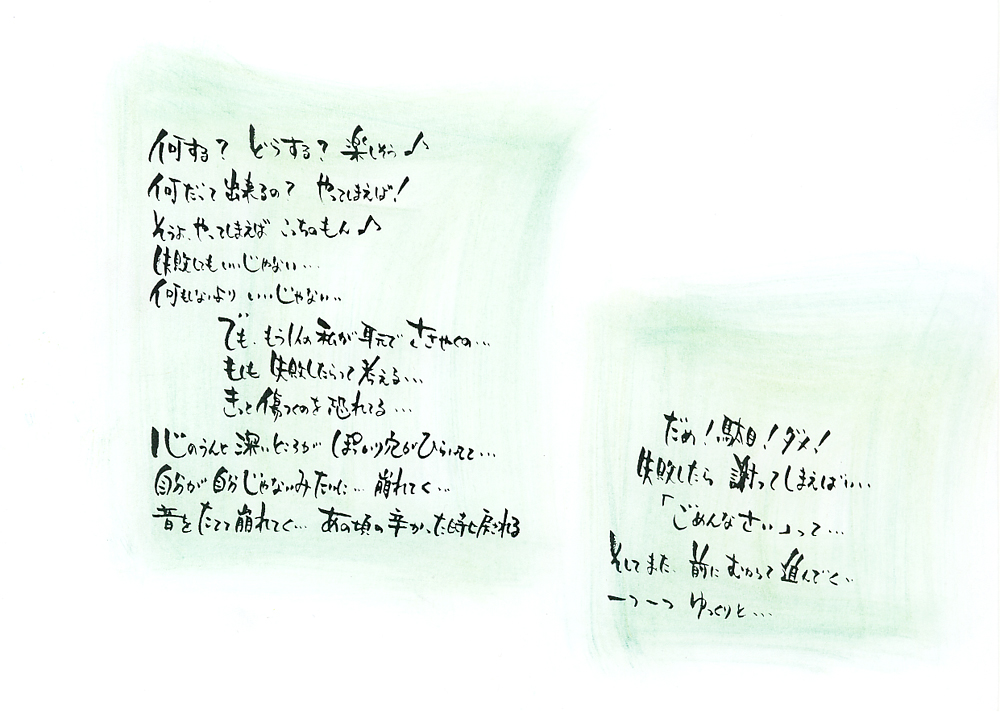 何する？ どうする？ 楽しそう♪
何だって出来るの？ やってしまえば！
そうよ、やってしまえば こっちのもん♪
失敗してもいいじゃない…
何もしないより いいじゃない…
でも、もう1人の私が耳元でささやくの…
もしも 失敗したらって考える…
きっと傷つくのを恐れてる…
心のうんと深いところが ぽっかり穴がひらいてて…
自分が自分じゃないみたいに… 崩れてく…
音をたてて崩れてく… あの頃の辛かった時に戻される
だめ！駄目！ダメ！
失敗したら 謝ってしまえばいい…
「ごめんなさい」って…
そしてまた、前にむかって進んでく…
一つ一つ ゆっくりと…